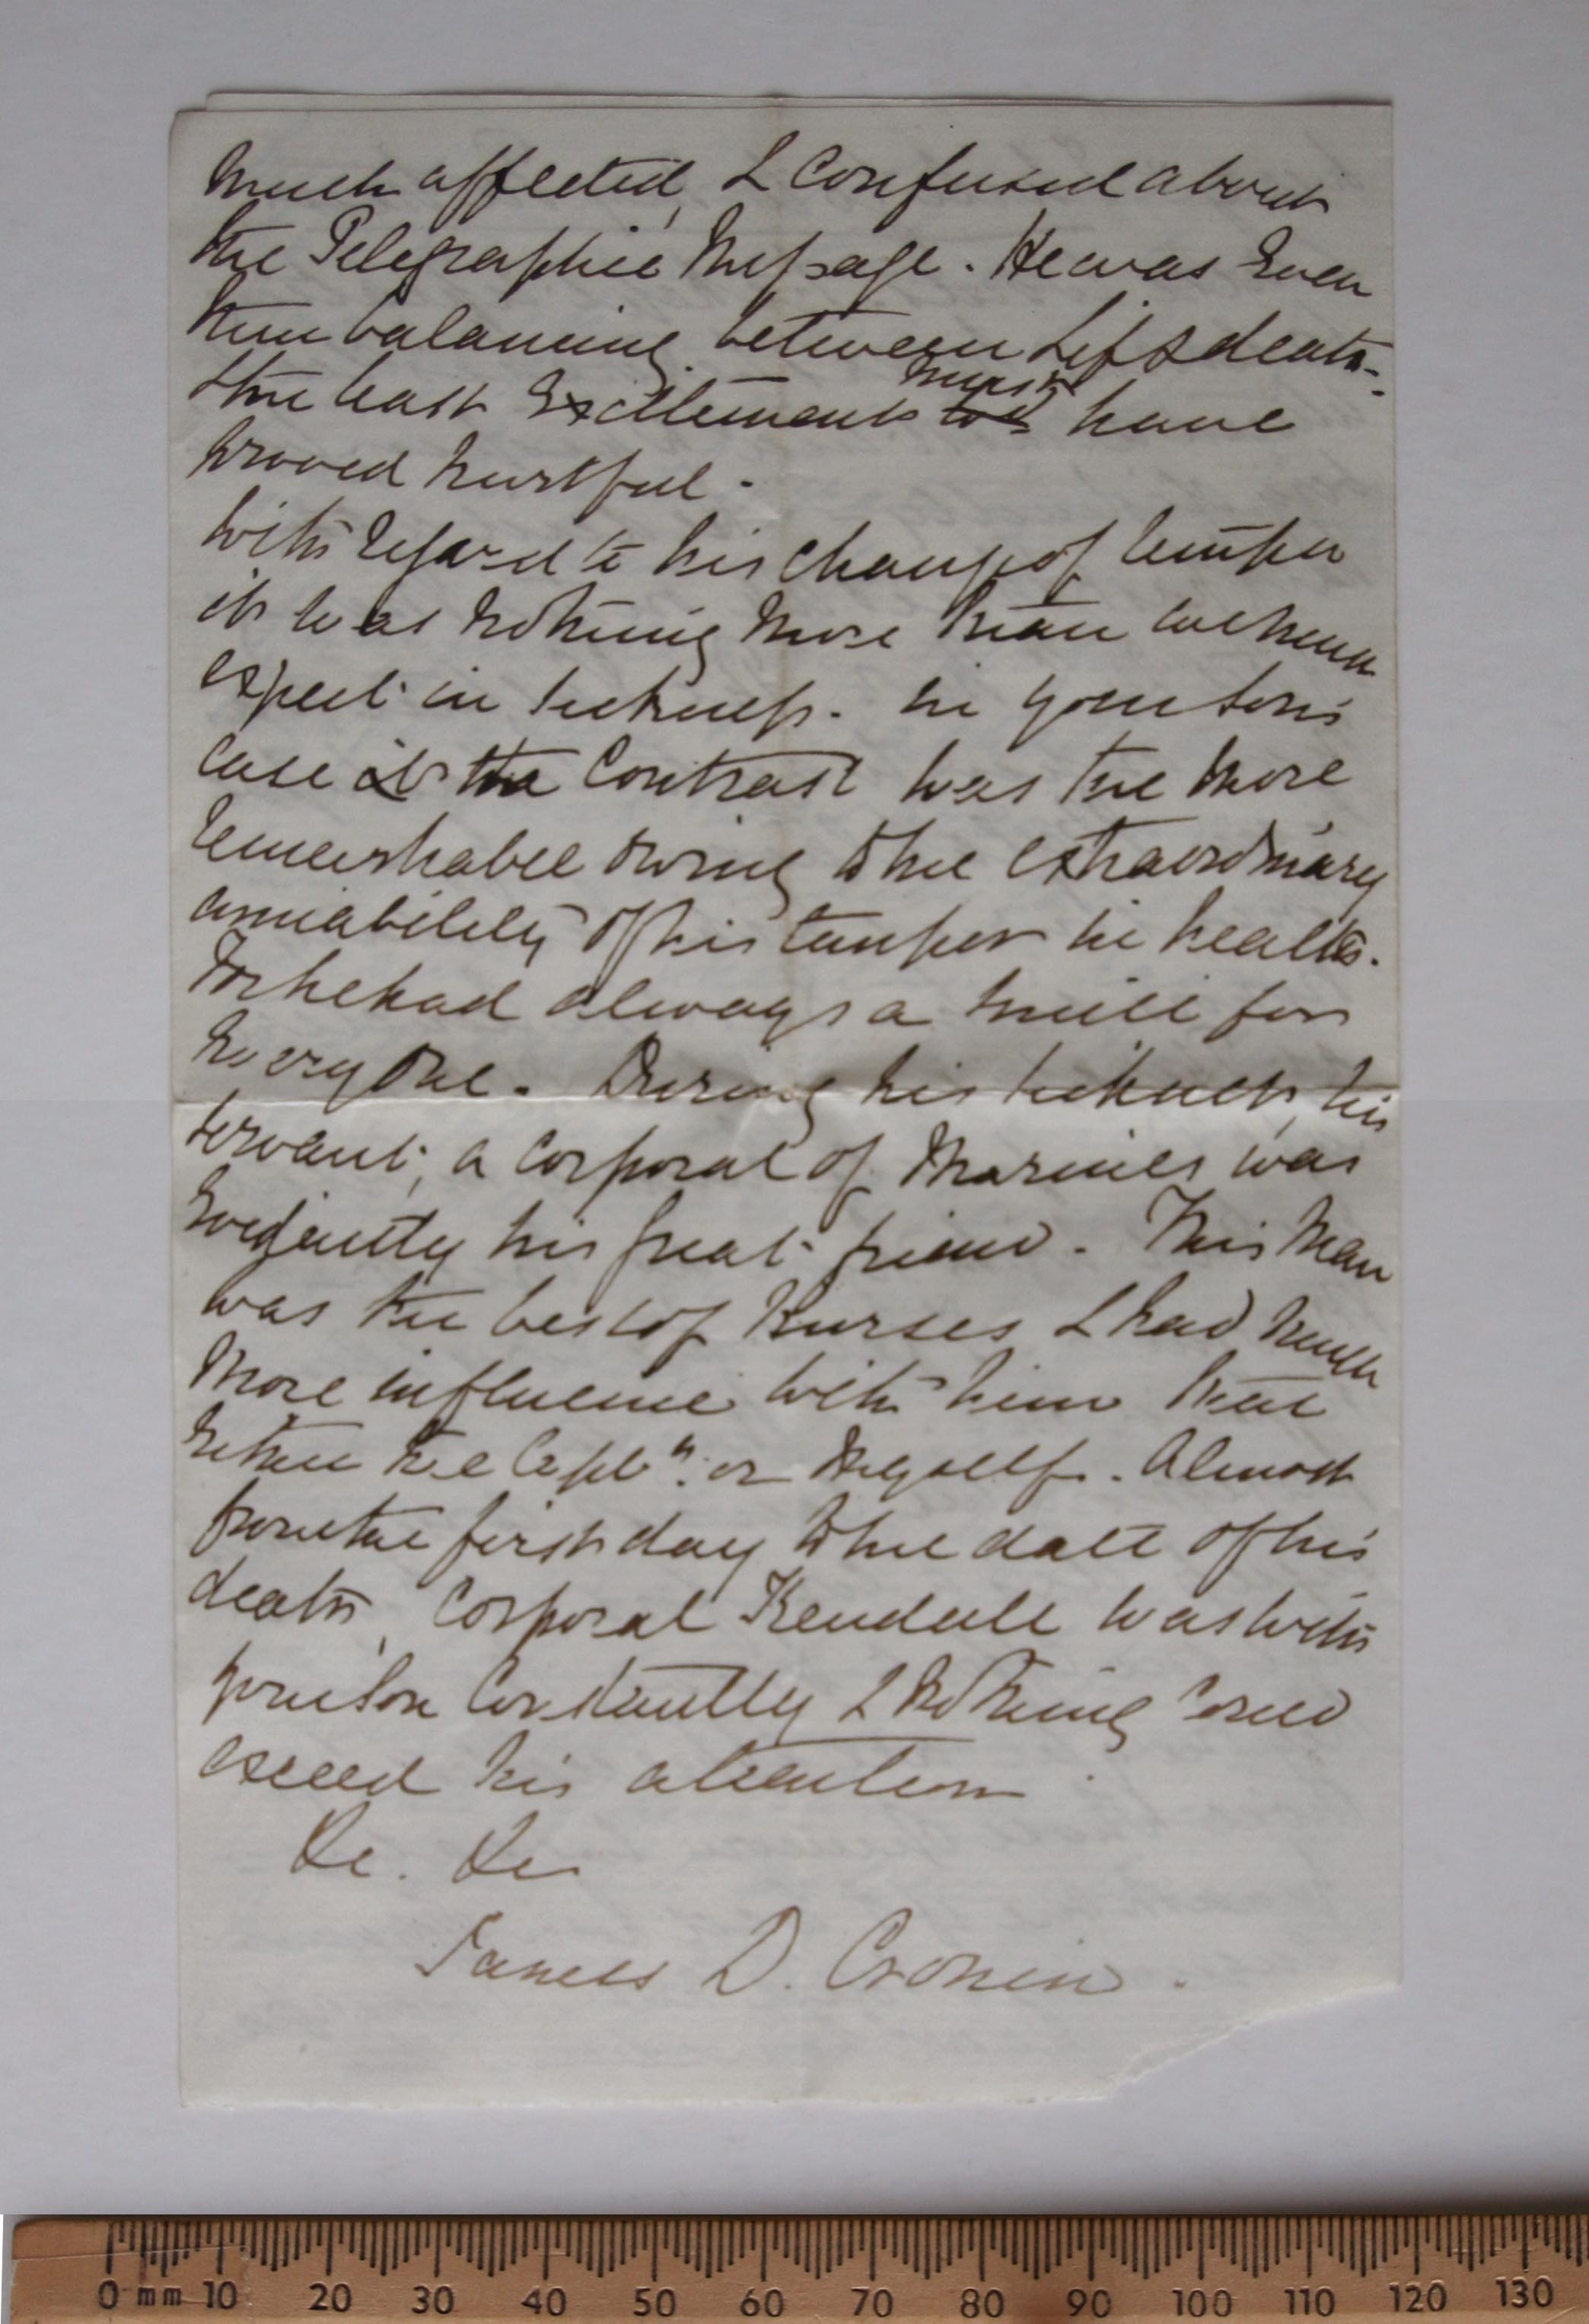 much affected, & confused about
the Telegraphic Message. He was Even
then balancing between Life & death -
& the least Excitement must have
proved hurtful -
With regard to his change of temper
it was nothing more than we must
expect in sickness. in your son's
case it the Contrast was the more
remarkable owing to the extraordinary
amiability of his temper in health.
For he had always a smile for
Every One. During his sickness, his
servant, a Corporal of Marines was
Evidently his great friend. This Man
was the best of Nurses & had much
More influence with him than
Either the Captn. or Myself. Almost
from the first day to the date of his
death, Corporal Kendall was with
your son Constantly & nothing could
exceed his attention
&c. &c
James D. Cronin.
0 mm 10 20 30 40 50 60 70 80 90 100 110 120 130